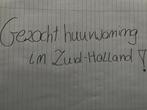 Gezocht huurwoning
im Zuid-Holland!